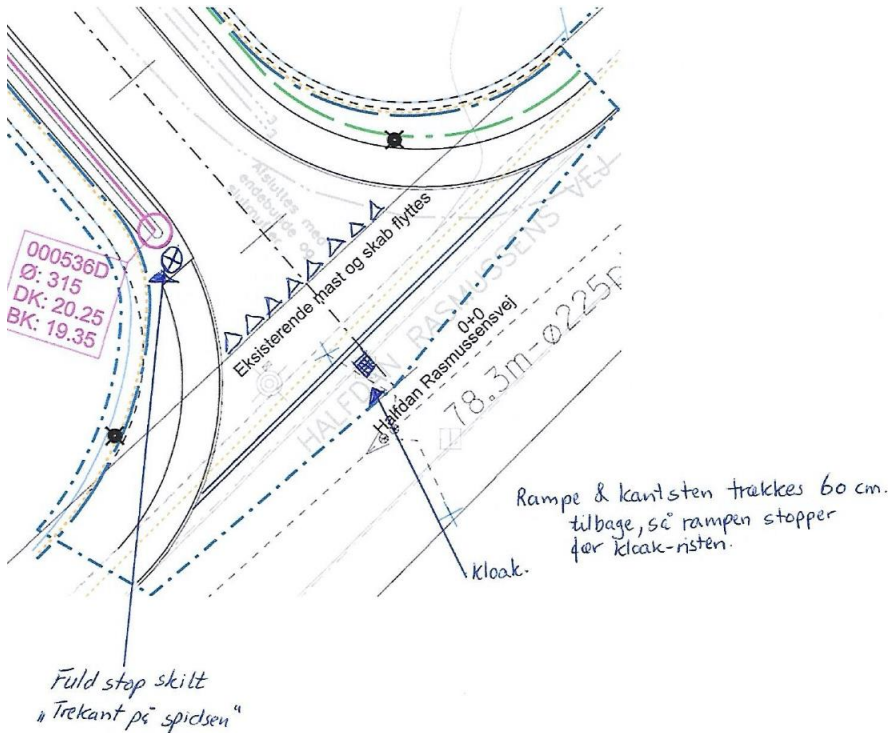 Afsluttes med
endebund og
000536D
Ø: 315
DK: 20.25
BK: 19.35
Eksisterende mast og skab flyttes
HALFDAN RASMUSSENS VEJ
0+0
Halfdan Rasmussensvej
78.3m-ø225p
Rampe & kantsten trækkes 60 cm.
tilbage, så rampen stopper
før kloak-risten.
Kloak.
Fuld stop skilt
"Trekant på spidsen"